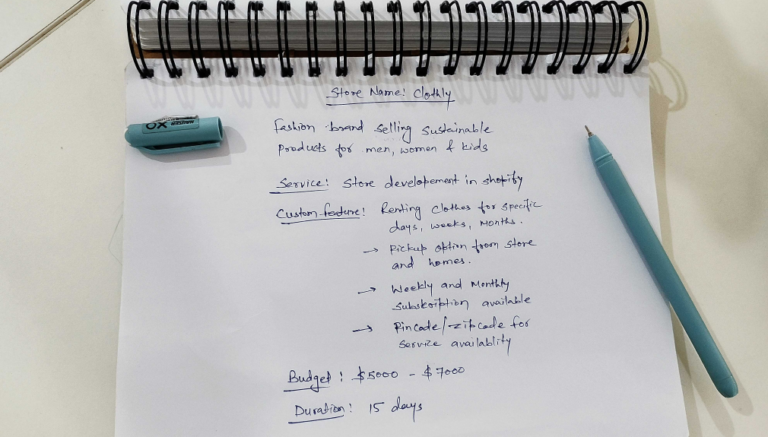 Store Name: Clothly
Fashion brand selling sustainable
products for men, women & kids
Service: Store developement in shopify
Custom feature: Renting clothes for specific
days, weeks, months.
→ Pickup option from store
and homes.
→ Weekly and Monthly
subskription available
→ Pincode/zipcode for
service availablity
Budget: $5000 - $7000
Duration: 15 days